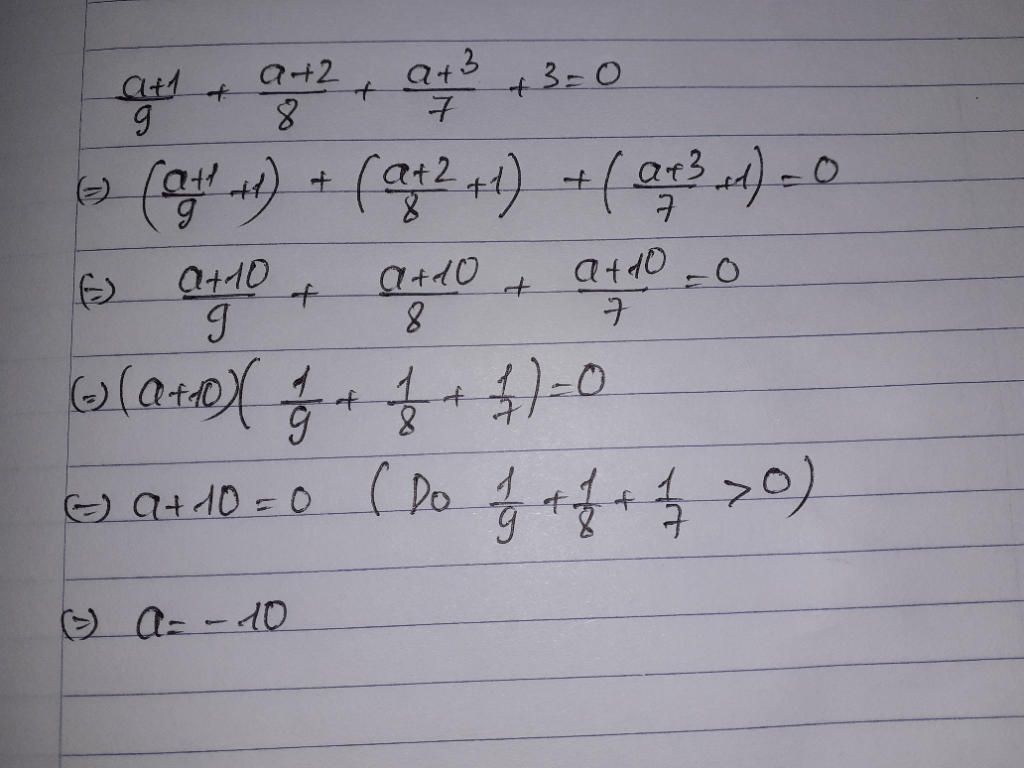 a+1/9 + a+2/8 + a+3/7 + 3 = 0
(=) (a+1/9 +1) + (a+2/8 +1) + (a+3/7 +1) = 0
(=) a+10/9 + a+10/8 + a+10/7 = 0
(=) (a+10)(1/9 + 1/8 + 1/7) = 0
(=) a+10 = 0 (Do 1/9 + 1/8 + 1/7 > 0)
(=) a = -10